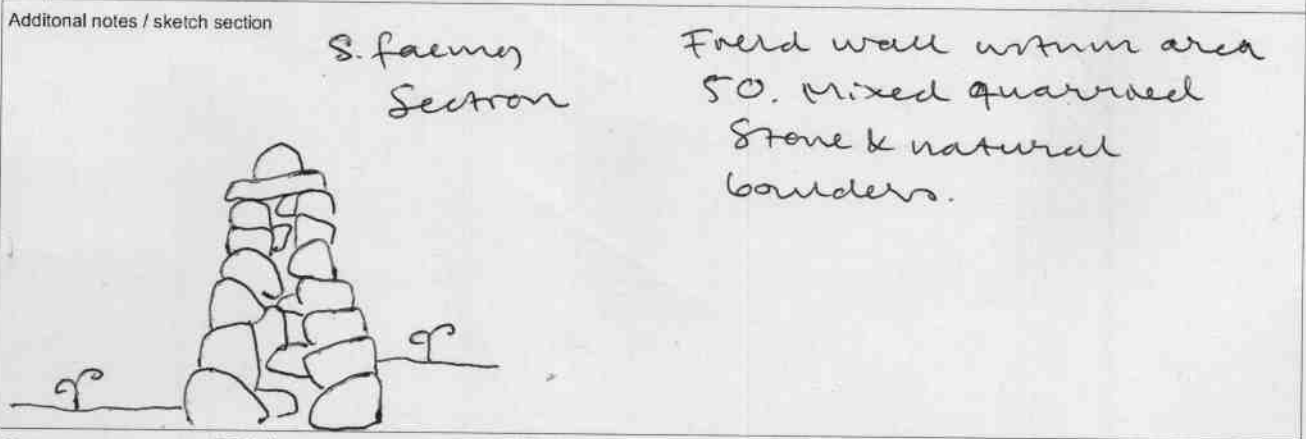 Additonal notes / sketch section
S. facing
Section
Field wall within area
50. Mixed quarried
Stone & natural
boulders.